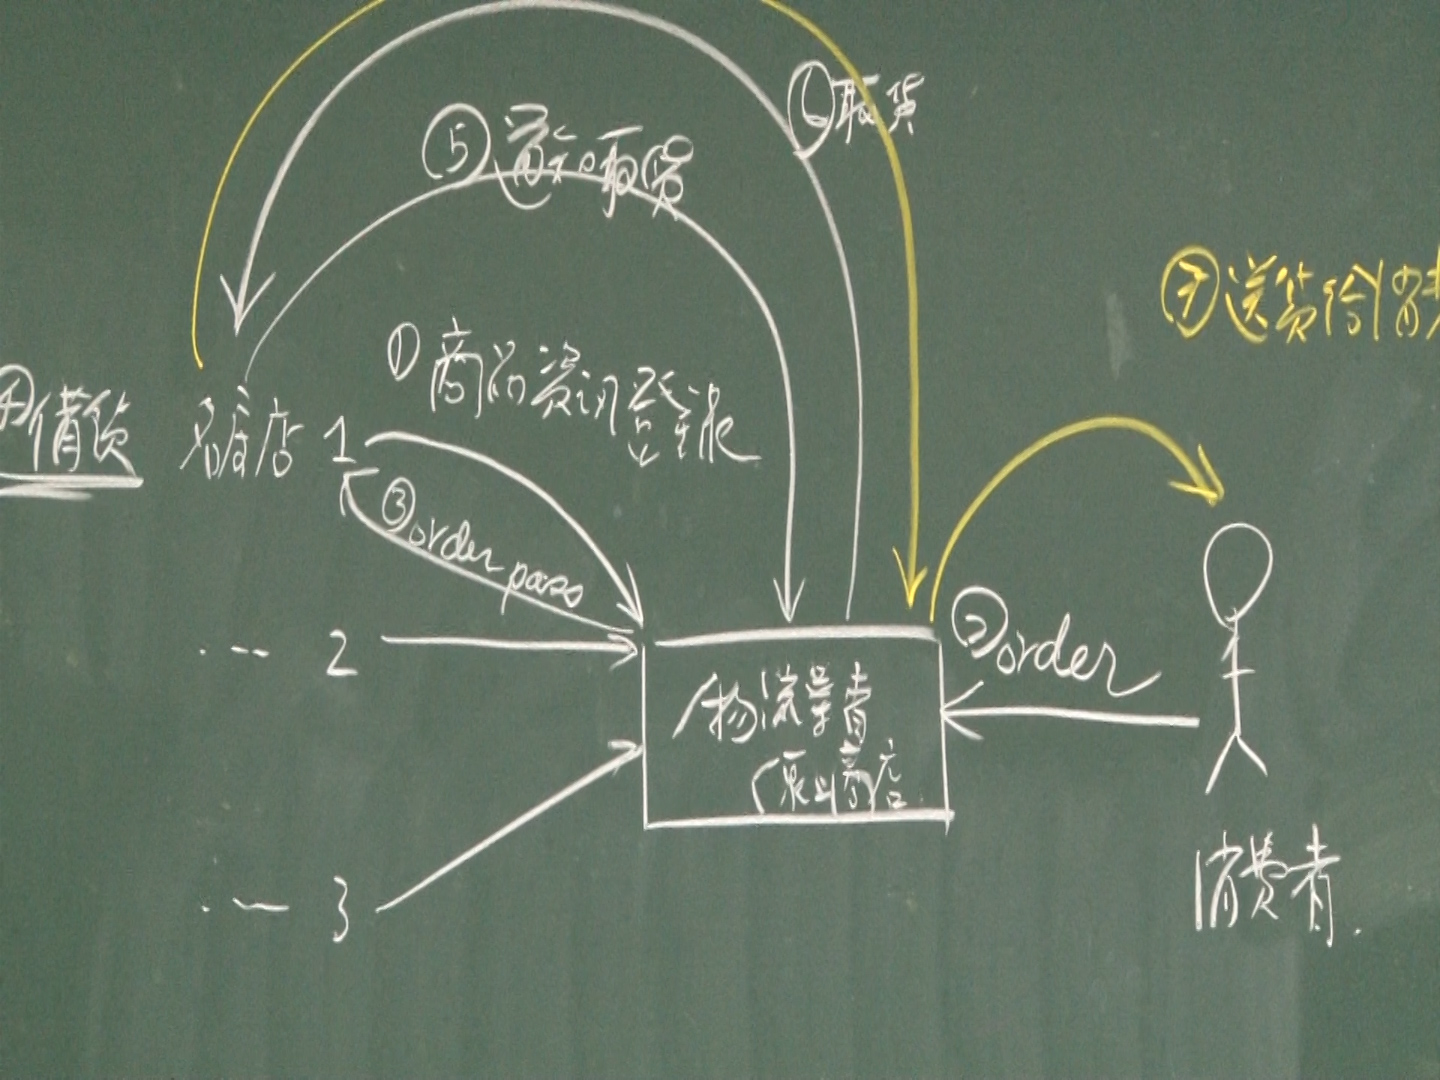 ⑥取货
⑤通知取货
⑦送货给消
①商品资讯登录
④备货
店 1
③order pass
②order
... 2
物流業者
商店
... 3
消費者.